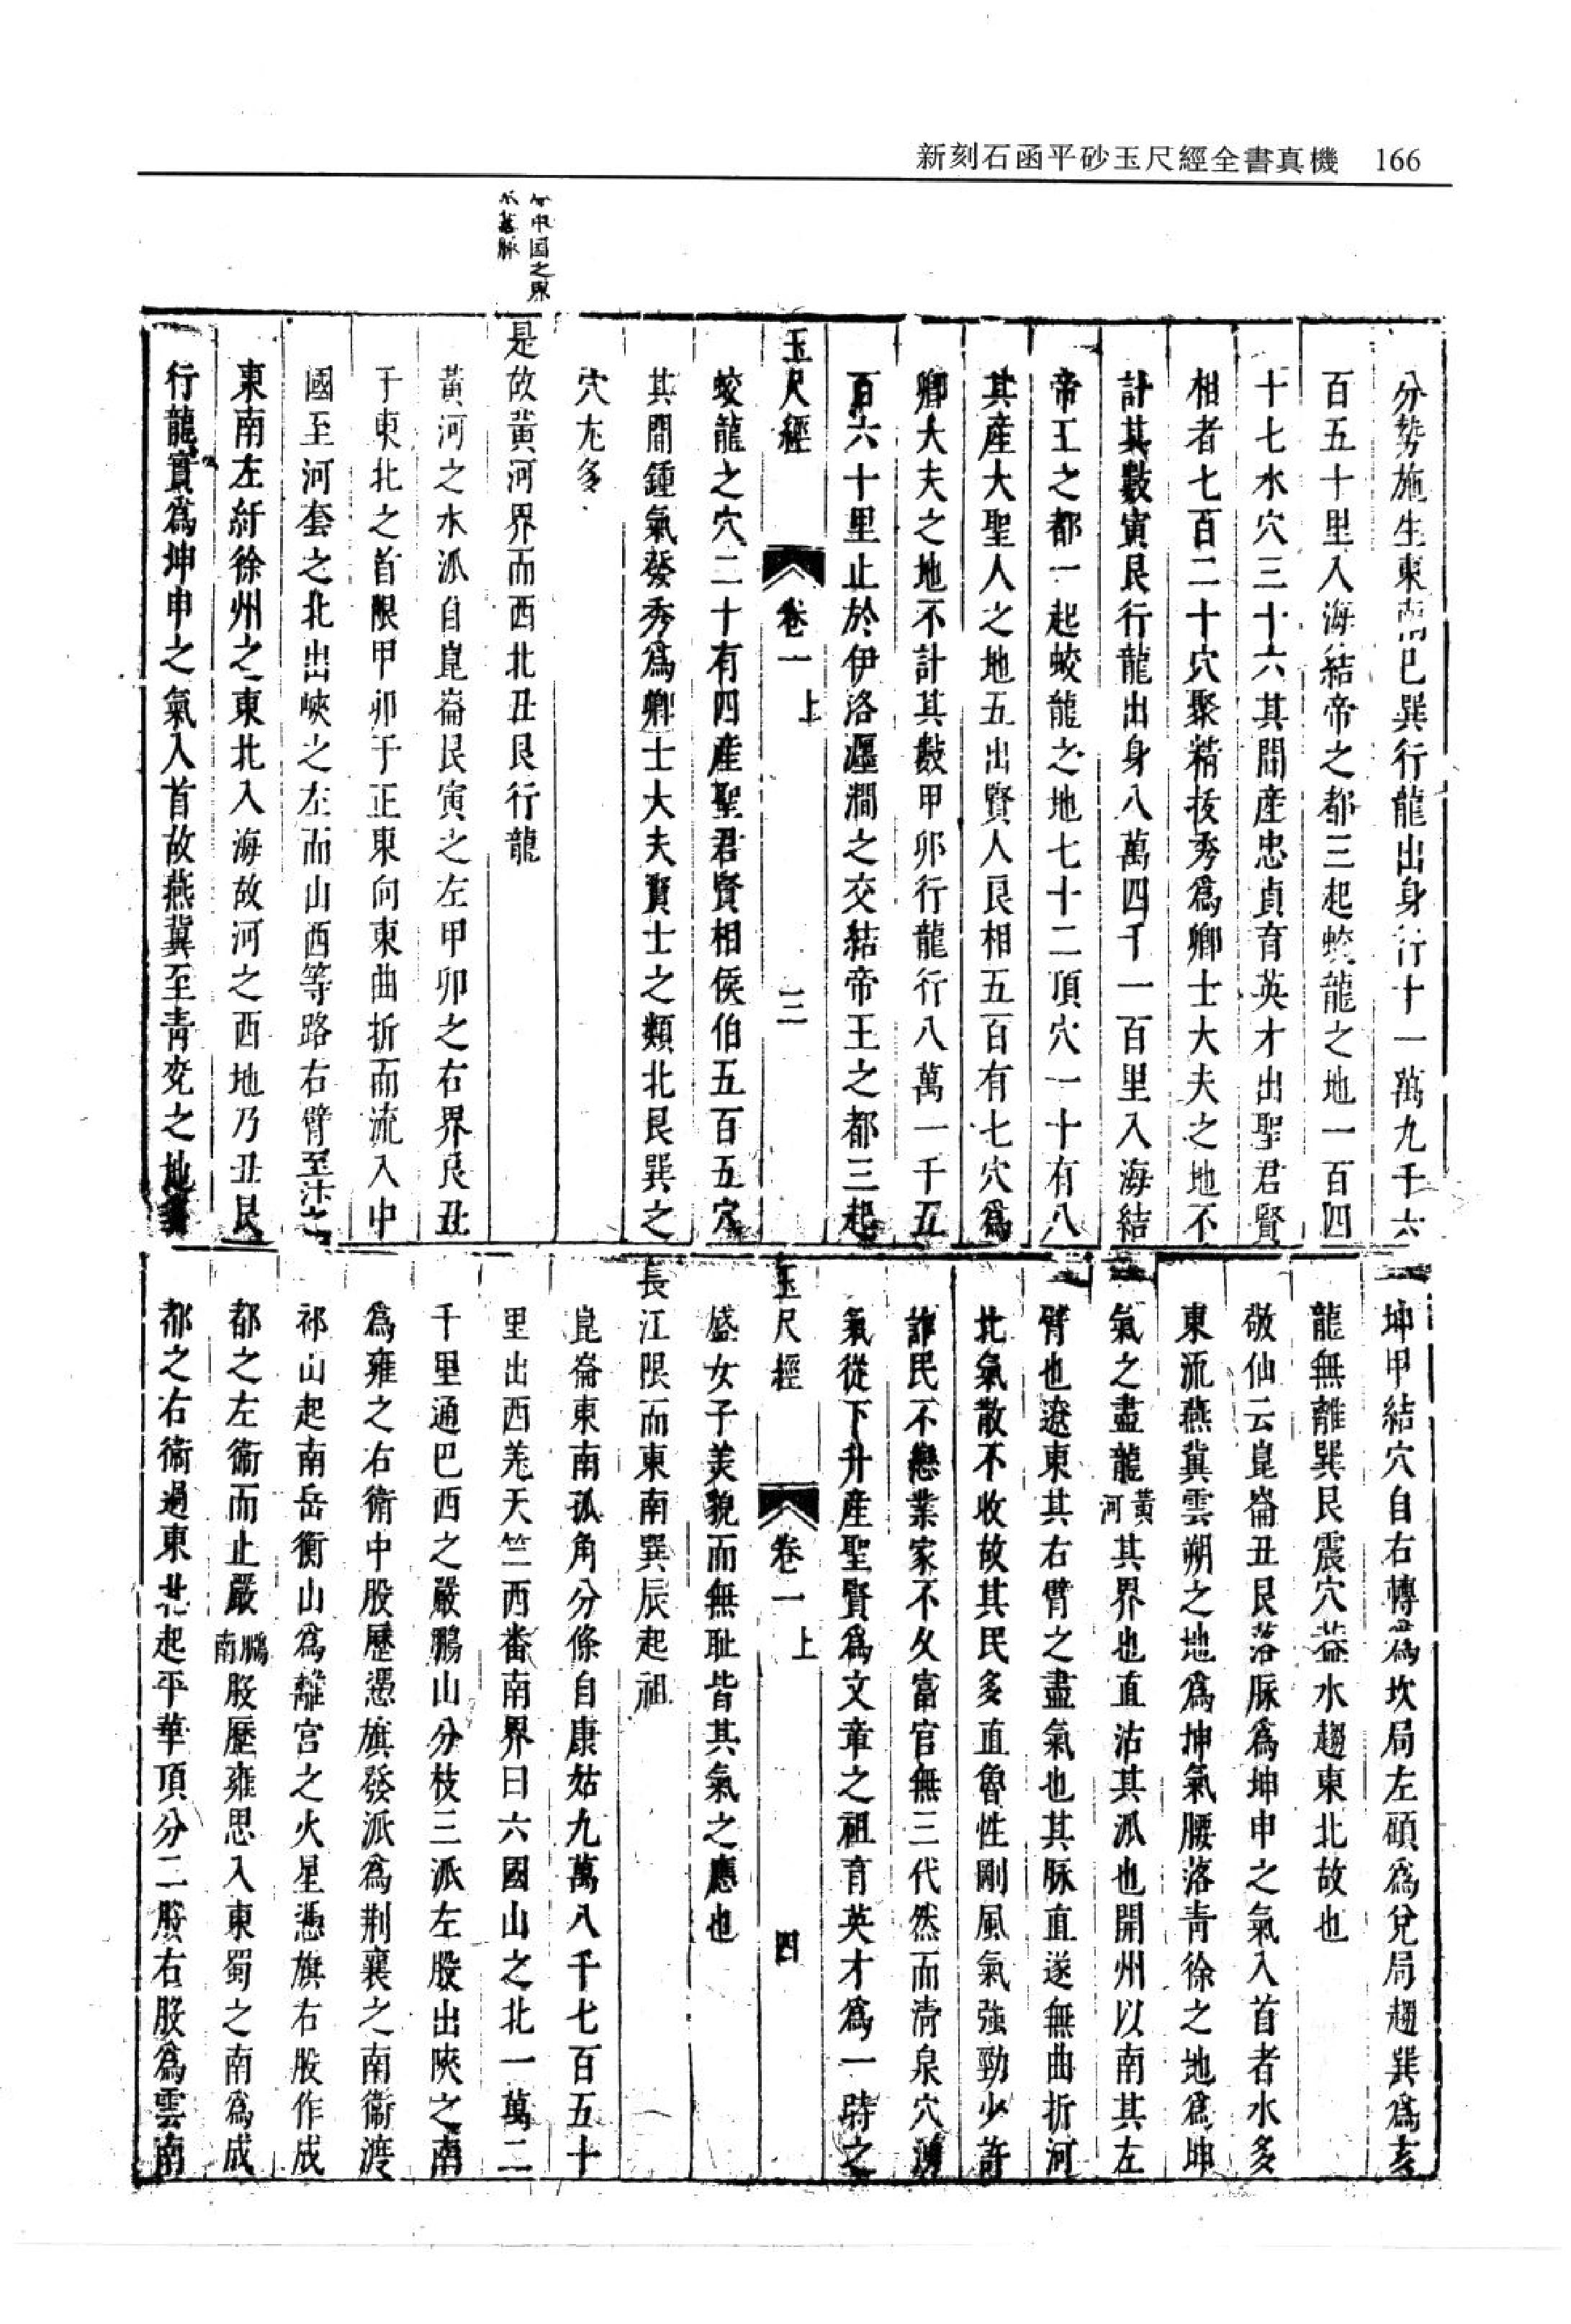 新刻石函平砂玉尺經全書真機 166
中国之界
脉
分勢施生東南巳巽行龍出身行十一萬九千六
百五十里入海結帝之都三起蛟龍之地一百四
十七水穴三十六其間產忠貞育英才出聖君賢
相者七百二十穴聚精拔秀爲卿士大夫之地不
計其數寅艮行龍出身八萬四千一百里入海結
帝王之都一起蛟龍之地七十二頂穴一十有八
其產大聖人之地五出賢人良相五百有七穴爲
卿大夫之地不計其數甲卯行龍行八萬一千五
百六十里止於伊洛瀍澗之交結帝王之都三起
玉尺經 卷一 上 三
蛟龍之穴二十有四產聖君賢相侯伯五百五穴
其間鍾氣發秀爲卿士大夫賢士之類北艮巽之
穴尤多
是故黃河界而西北丑艮行龍
黃河之水派自崑崙艮寅之左甲卯之右界艮丑
于東北之首限甲卯于正東向東曲折而流入中
國至河套之北出峽之左而山西等路右臂至汴之
東南左紆徐州之東北入海故河之西地乃丑艮
行龍實爲坤申之氣入首故燕冀至青兗之地
坤甲結穴自右轉爲坎局左碩爲兌局趨巽爲亥
龍無離巽艮震穴葢水趨東北故也
敬仙云崑崙丑艮落脉爲坤申之氣入首者水多
東流燕冀雲朔之地爲坤氣腰落青徐之地爲坤
氣之盡龍黃河其界也直沽其派也開州以南其左
臂也遼東其右臂之盡氣也其脉直遂無曲折河
北氣散不收故其民多直魯性剛風氣強勁少許
詐民不戀業家不久富官無三代然而清泉穴湧
氣從下升產聖賢爲文章之祖育英才爲一時之
玉尺經 卷一 上 四
盛女子美貌而無耻皆其氣之應也
長江限而東南巽辰起祖
崑崙東南孤角分條自康姑九萬八千七百五十
里出西羗天竺西畨南界曰六國山之北一萬二
千里通巴西之嚴鵬山分枝三派左股出陝之南
爲雍之右衛中股歷憑旗發派爲荆襄之南衞渡
祁山起南岳衡山爲離宫之火星憑旗右股作成
都之左衞而止嚴鵬南股歷雍思入東蜀之南爲成
都之右衞過東北起平華頂分二股右股爲雲南